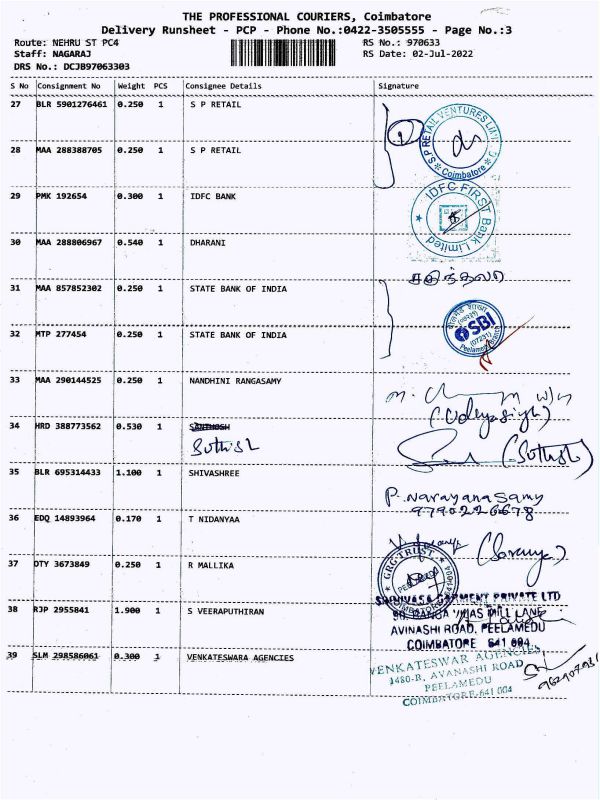 THE PROFESSIONAL COURIERS, Coimbatore
Delivery Runsheet - PCP - Phone No.:0422-3505555 - Page No.:3
Route: NEHRU ST PC4 RS No.: 970633
Staff: NAGARAJ RS Date: 02-Jul-2022
DRS No.: DCJB97063303
S No Consignment No Weight PCS Consignee Details Signature
27 BLR 5901276461 0.250 1 S P RETAIL
S P RETAIL VENTURES
Coimbatore
28 MAA 288388705 0.250 1 S P RETAIL
29 PMK 192654 0.300 1 IDFC BANK
IDFC FIRST Bank Limited
30 MAA 288806967 0.540 1 DHARANI
31 MAA 857852302 0.250 1 STATE BANK OF INDIA
SBI
(07231)
Peelamedu Branch
32 MTP 277454 0.250 1 STATE BANK OF INDIA
33 MAA 290144525 0.250 1 NANDHINI RANGASAMY
34 HRD 388773562 0.530 1 SANTHOSH
Suthish (Suthish)
35 BLR 695314433 1.100 1 SHIVASHREE
P. Narayanasamy
9790226678
36 EDQ 14893964 0.170 1 T NIDANYAA
(Saranya)
37 DTY 3673849 0.250 1 R MALLIKA
GRG TRUST
COIMBATORE
38 RJP 2955841 1.900 1 S VEERAPUTHIRAN
GARMENT PRIVATE LTD
MILL LANE
AVINASHI ROAD, PEELAMEDU
COIMBATORE 641 004
39 SLM 298586061 0.300 1 VENKATESWARA AGENCIES
VENKATESWAR AGENCIES
1480-R, AVANASHI ROAD
PEELAMEDU
COIMBATORE-641 004